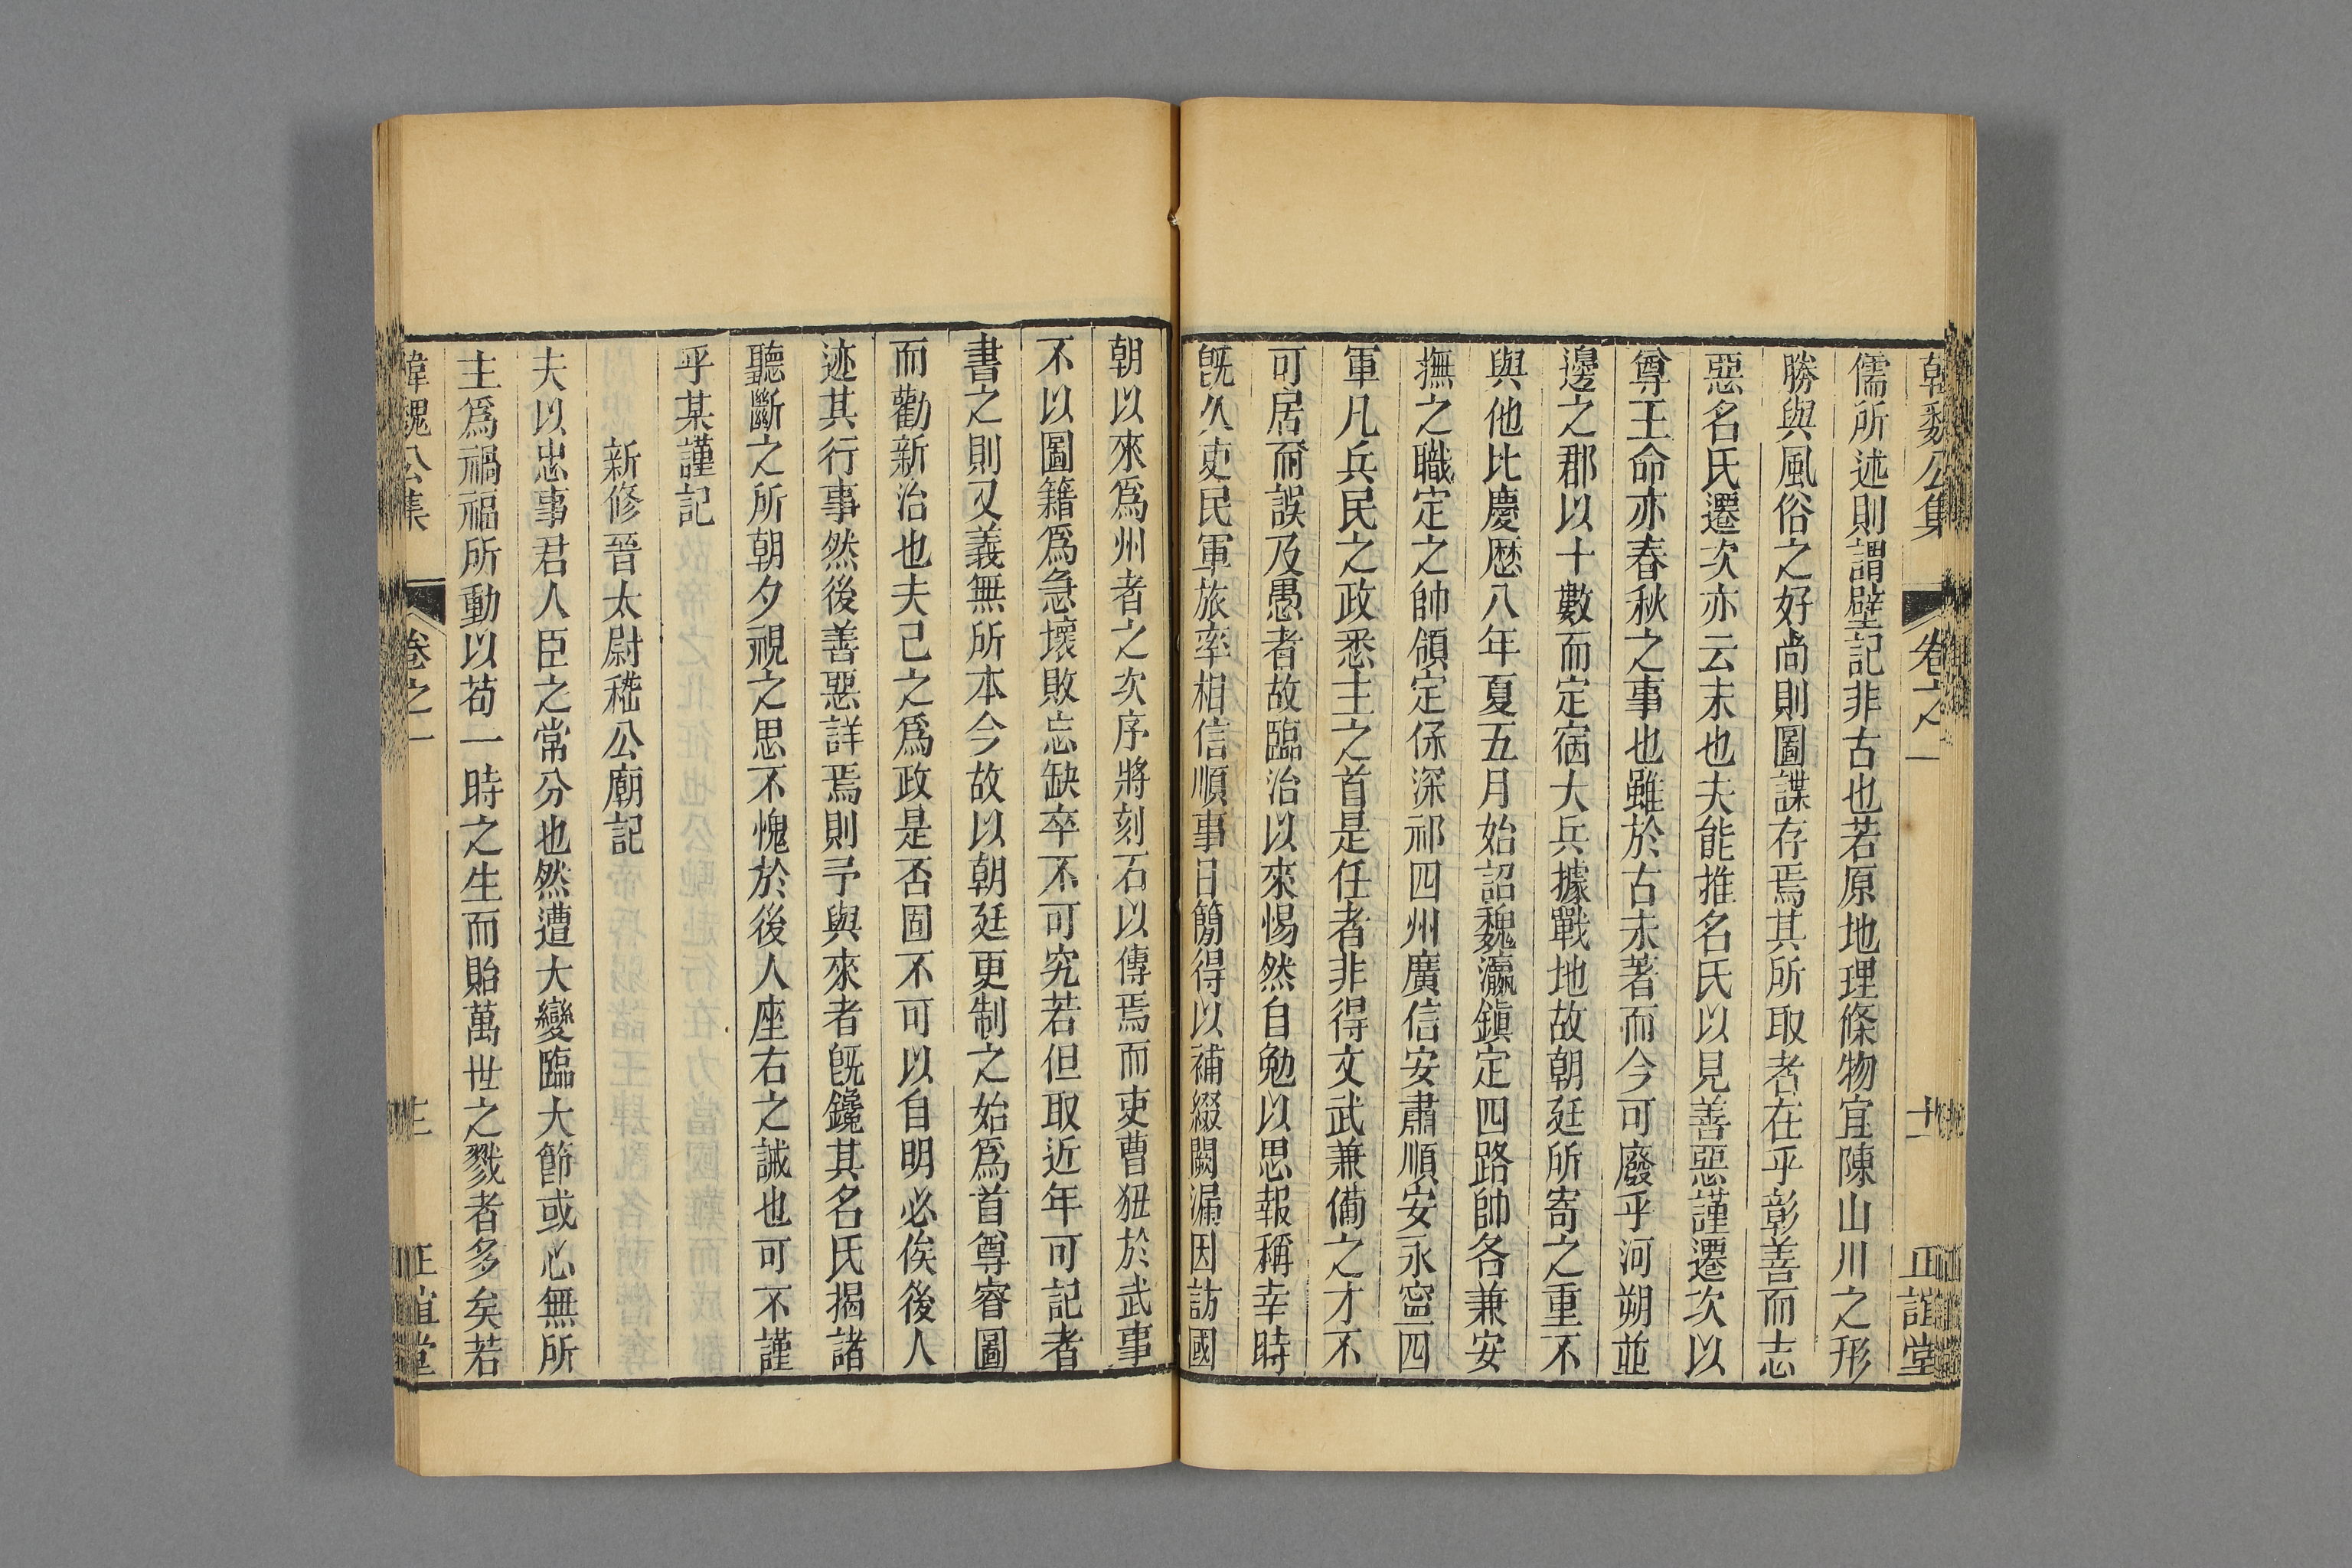 韓魏公集 卷之一 十一 正誼堂
儒所述則謂壁記非古也若原地理條物宜陳山川之形
勝與風俗之好尚則圖諜存焉其所取者在乎彰善而志
惡名氏遷次亦云末也夫能推名氏以見善惡謹遷次以
尊王命亦春秋之事也雖於古未著而今可廢乎河朔並
邊之郡以十數而定宿大兵據戰地故朝廷所寄之重不
與他比慶歷八年夏五月始詔魏瀛鎮定四路帥各兼安
撫之職定之帥領定保深祁四州廣信安肅順安永寧四
軍凡兵民之政悉主之首是任者非得文武兼備之才不
可居而誤及愚者故臨治以來惕然自勉以思報稱幸時
旣久吏民軍旅率相信順事日簡得以補綴闕漏因訪國
朝以來爲州者之次序將刻石以傳焉而吏曹狃於武事
不以圖籍爲急壞敗忘缺卒不可究若但取近年可記者
書之則又義無所本今故以朝廷更制之始爲首尊睿圖
而勸新治也夫己之爲政是否固不可以自明必俟後人
迹其行事然後善惡詳焉則予與來者旣鑱其名氏揭諸
聽斷之所朝夕視之思不愧於後人座右之誡也可不謹
乎某謹記
新修晉太尉嵇公廟記
夫以忠事君人臣之常分也然遭大變臨大節或心無所
主爲禍福所動以苟一時之生而貽萬世之戮者多矣若
韓魏公集 卷之一 正誼堂